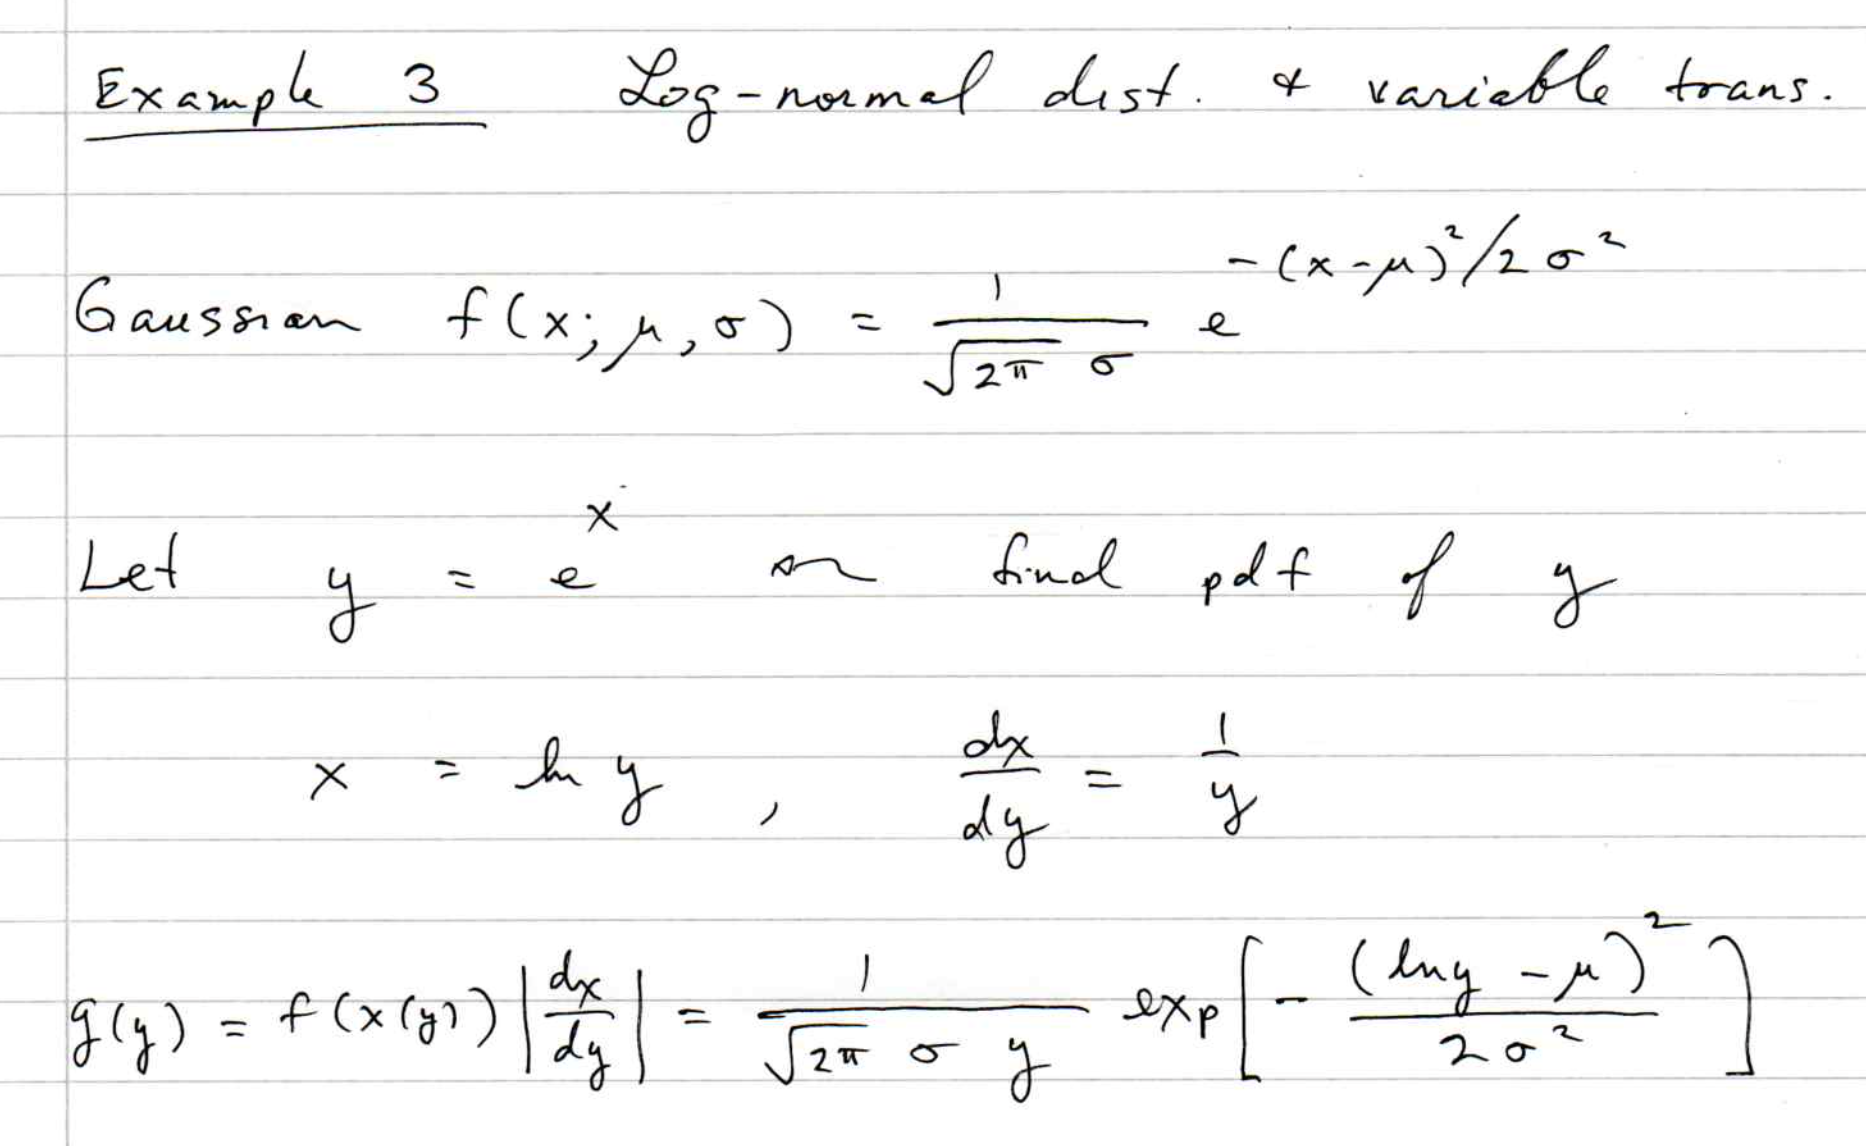 Example 3 Log-normal dist. & variable trans.
Gaussian f(x; μ, σ) = 1/(√(2π) σ) e^(-(x-μ)²/2σ²)
Let y = e^x → find pdf of y
x = ln y , dx/dy = 1/y
g(y) = f(x(y)) |dx/dy| = 1/(√(2π) σ y) exp[-(ln y - μ)²/(2σ²)]